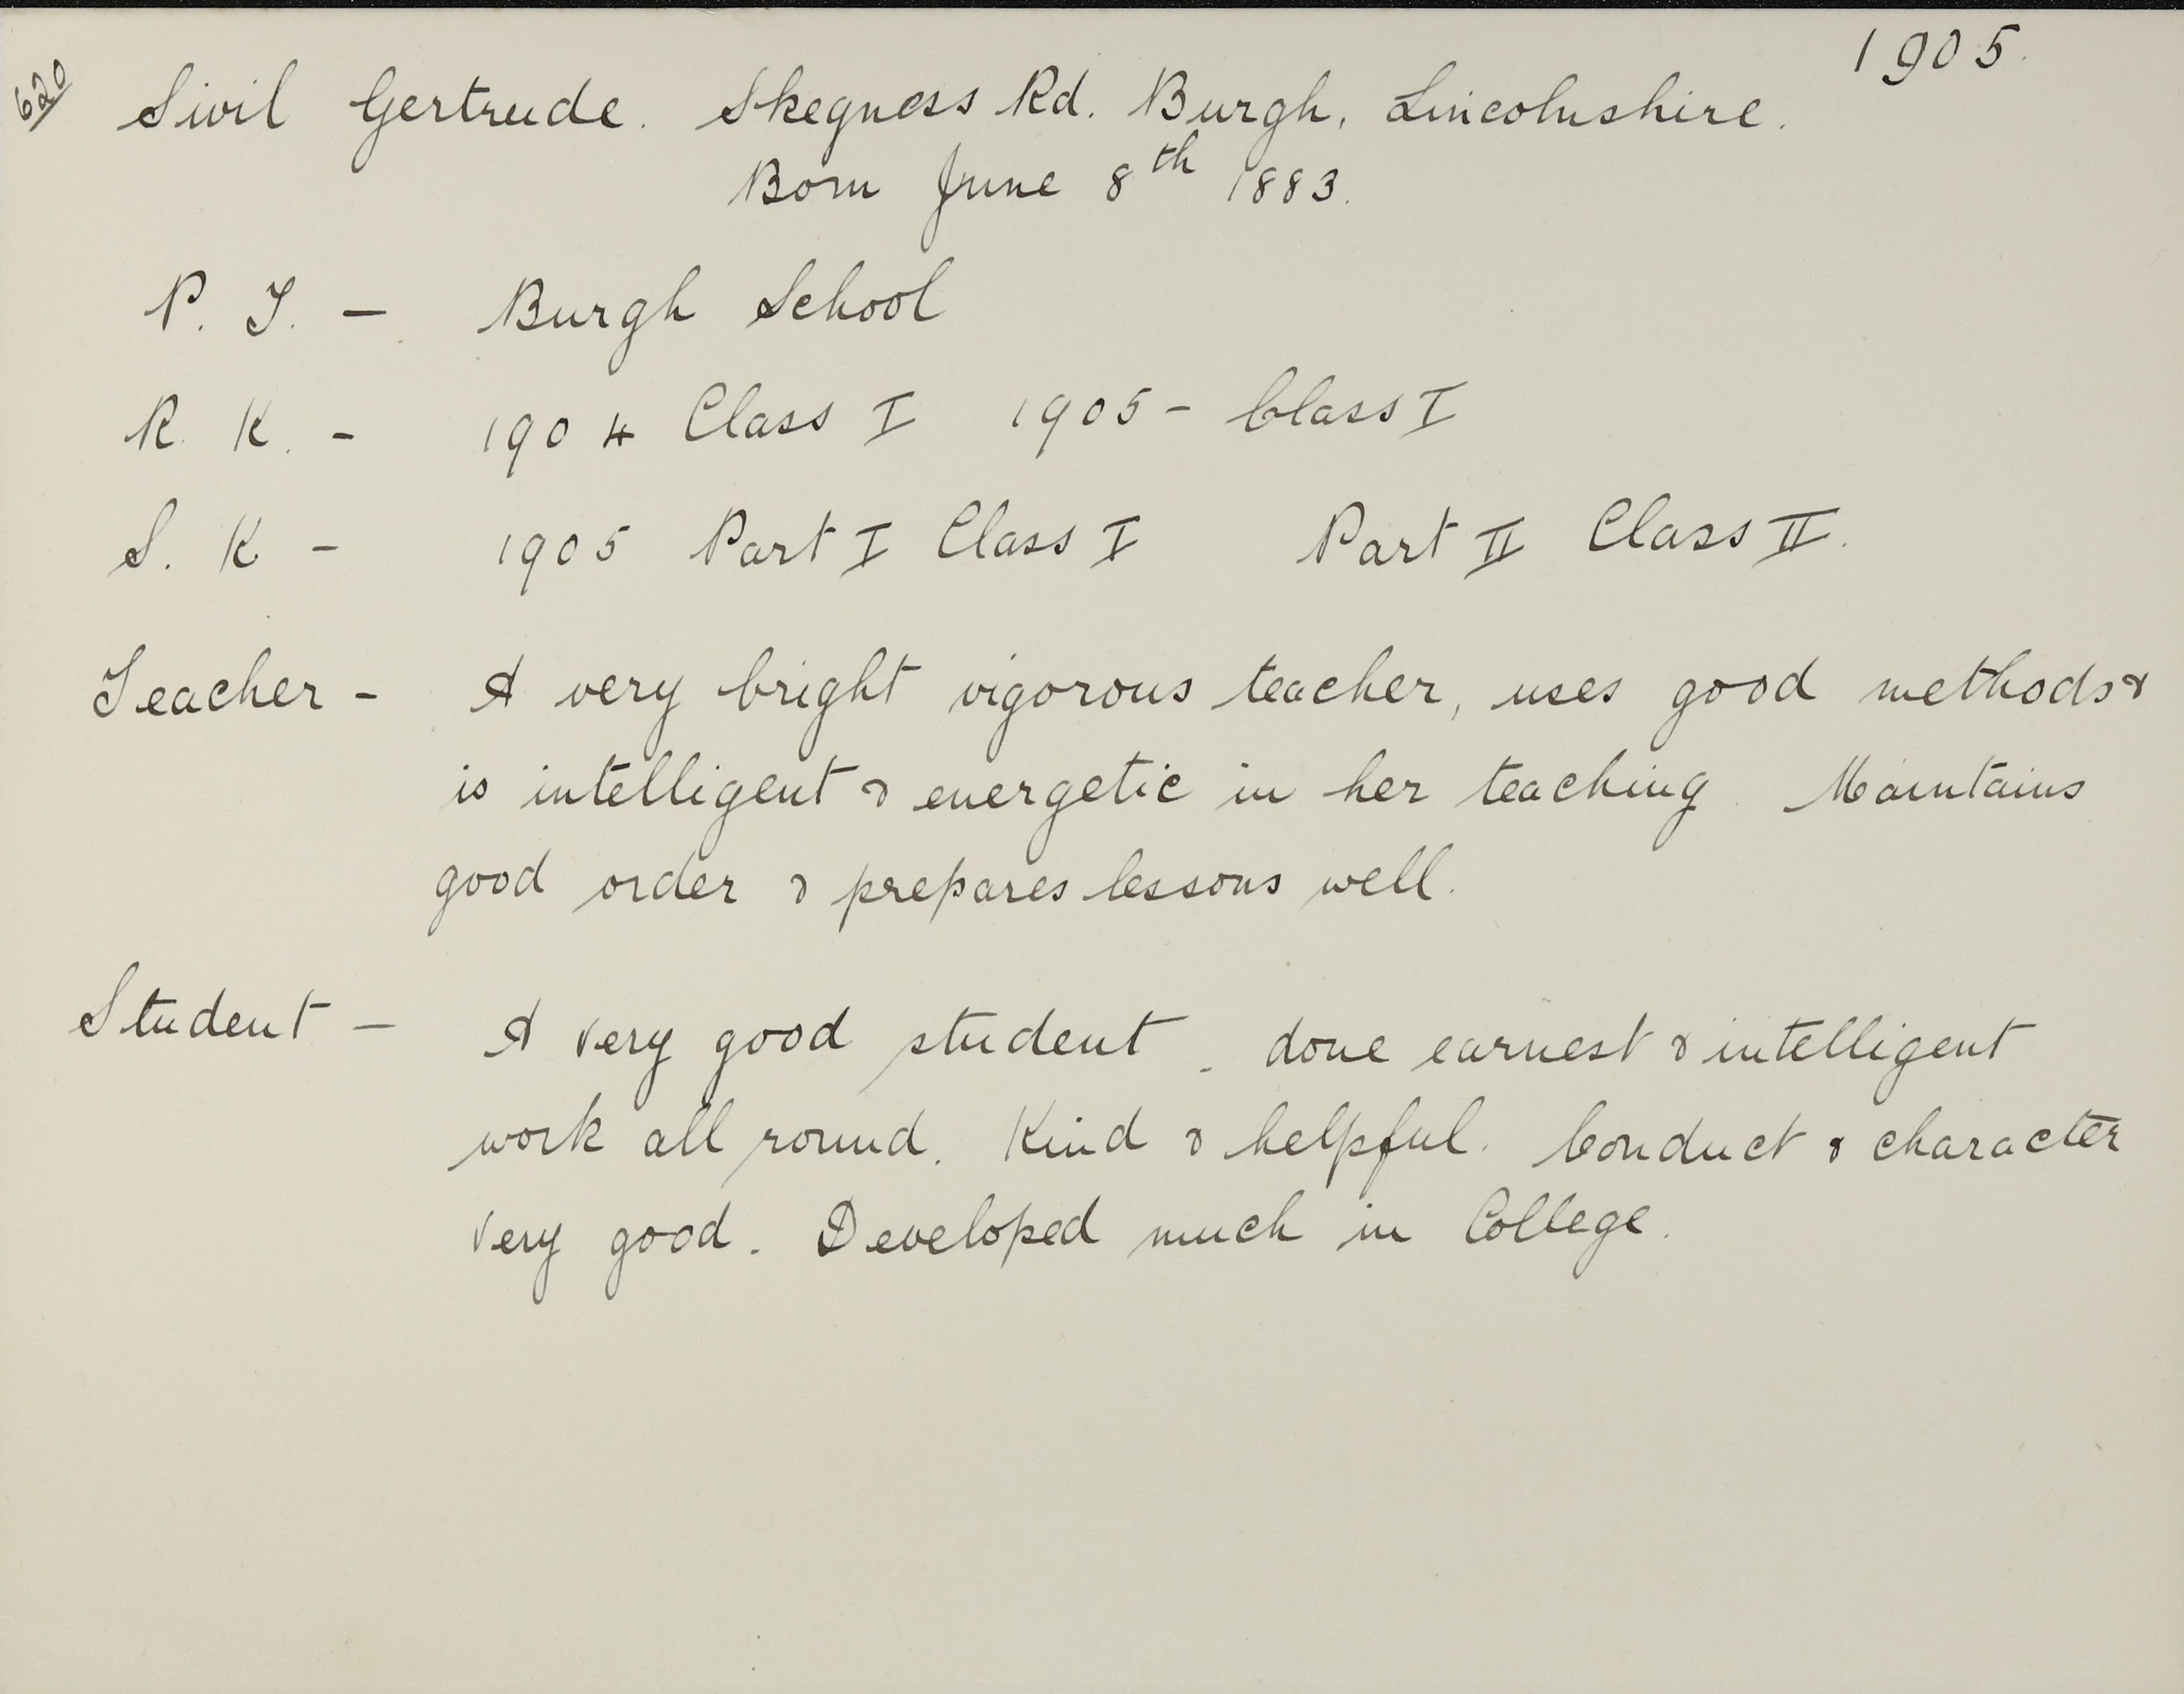 1905.
620
Sivil Gertrude. Skegness Rd. Burgh, Lincolnshire.
Born June 8th 1883.
P. T. - Burgh School
R. K. - 1904 Class I 1905 - Class I
S. K - 1905 Part I Class I Part II Class II.
Teacher - A very bright vigorous teacher, uses good methods &
is intelligent & energetic in her teaching. Maintains
good order & prepares lessons well.
Student - A very good student. done earnest & intelligent
work all round. Kind & helpful. Conduct & character
very good. Developed much in College.